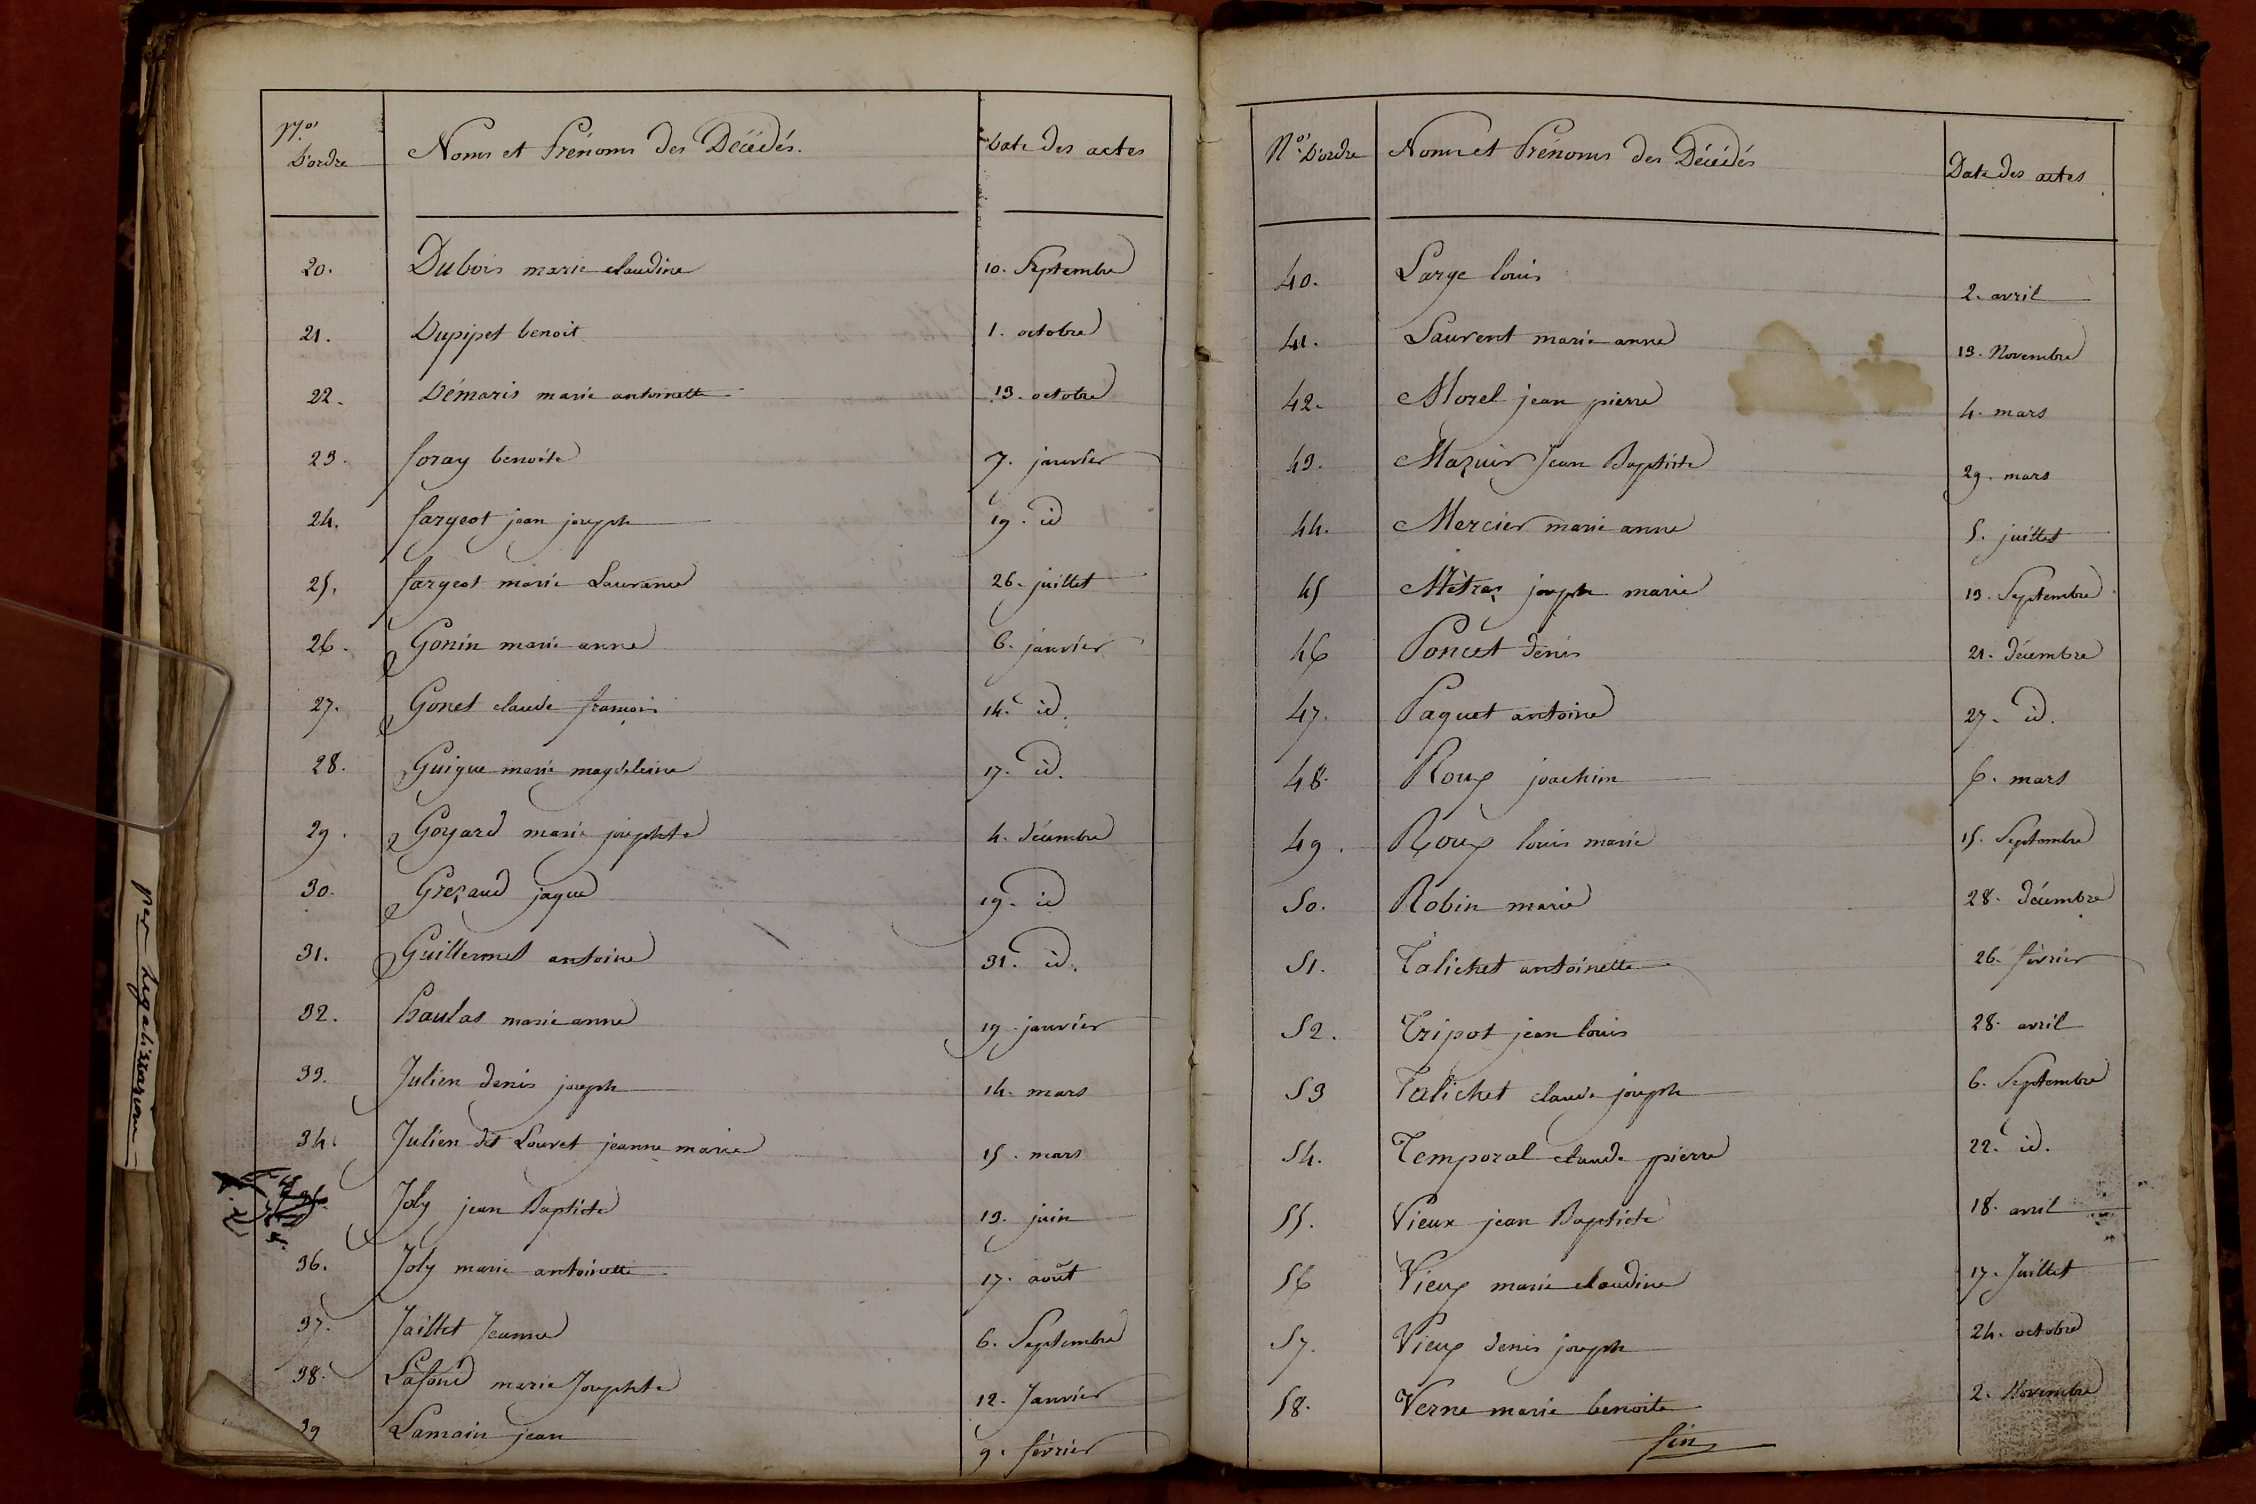 Nos D'ordre Noms et Prénoms des Décédés. Date des actes
20. Dubois marie claudine 10. Septembre
21. Dupipet benoit 1. octobre
22. Démaris marie antoinette 13. octobre
23. foray benoite 7. janvier
24. fargeot jean joseph 19. id
25. fargeot marie Laurance 26. juillet
26. Gonin marie anne 6. janvier
27. Gonet claude françois 14. id.
28. Guigue marie magdeleine 17. id.
29. Goyard marie josephte 4. décembre
30. Grezaud jaque 19. id
31. Guillermet antoine 31. id.
32. haulas marie anne 19. janvier
33. Julien denis joseph 14. mars
34. Julien dit Louvet jeanne marie 15. mars
Joly jean Baptiste 13. juin
36. Joly marie antoinette 17. août
37. Jaillet Jeanne 6. Septembre
38. Lafond marie Josephte 12. Janvier
39 Lamain jean 9. février
per Legalisation
Nos D'ordre Noms et Prénoms des Décédés Date des actes
40. Large louis 2. avril
41. Laurent marie anne 13. Novembre
42. Morel jean pierre 4. mars
43. Mazuir Jean Baptiste 29. mars
44. Mercier marie anne 5. juillet
45 Mètraz joseph marie 13. Septembre
46 Poncet denis 21. décembre
47. Paquet antoine 27. id.
48. Roux joachim 6. mars
49. Roux louis marie 15. Septembre
50. Robin marie 28. décembre
51. Talichet antoinette 26. février
52. Tripot jean louis 28. avril
53 Talichet claude joseph 6. Septembre
54. Temporal claude pierre 22. id.
55. Vieux jean Baptiste 18. avril
56 Vieux marie claudine 17. Juillet
57. Vieux denis joseph 24. octobre
58. Verne marie benoite 2. Novembre
fin